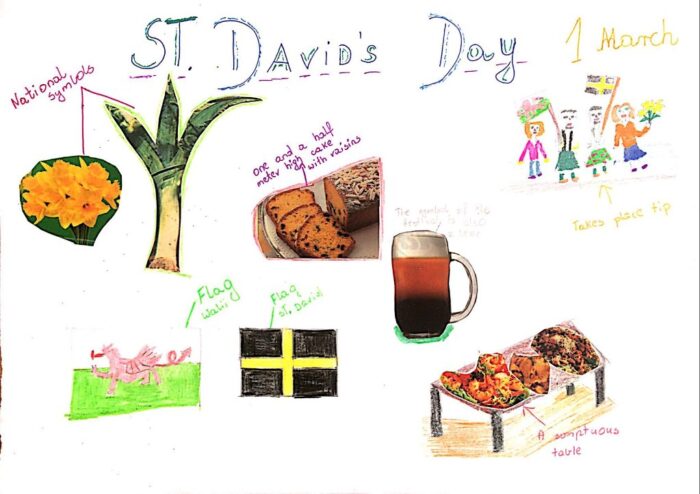 ST. DAVID'S DAY 1 March
National
symbols
one and a half
meter high cake
with raisins
The symbol of the
is also
Takes place tip
Flag
Walii
Flag
St. David
A sumptuous
table